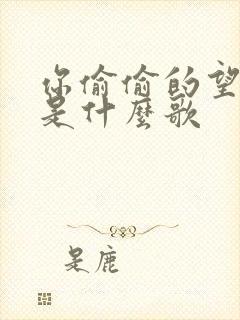 你偷偷的望
是什麼歌
是鹿